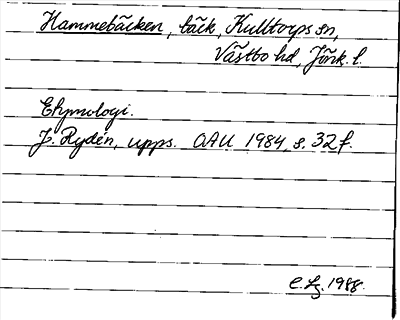 Hammebäcken, bäck, Kulltorps sn,
Västbo hd, Jönk. l.
Etymologi.
J. Rydén, upps. OAU 1984, s. 32 f.
1988.